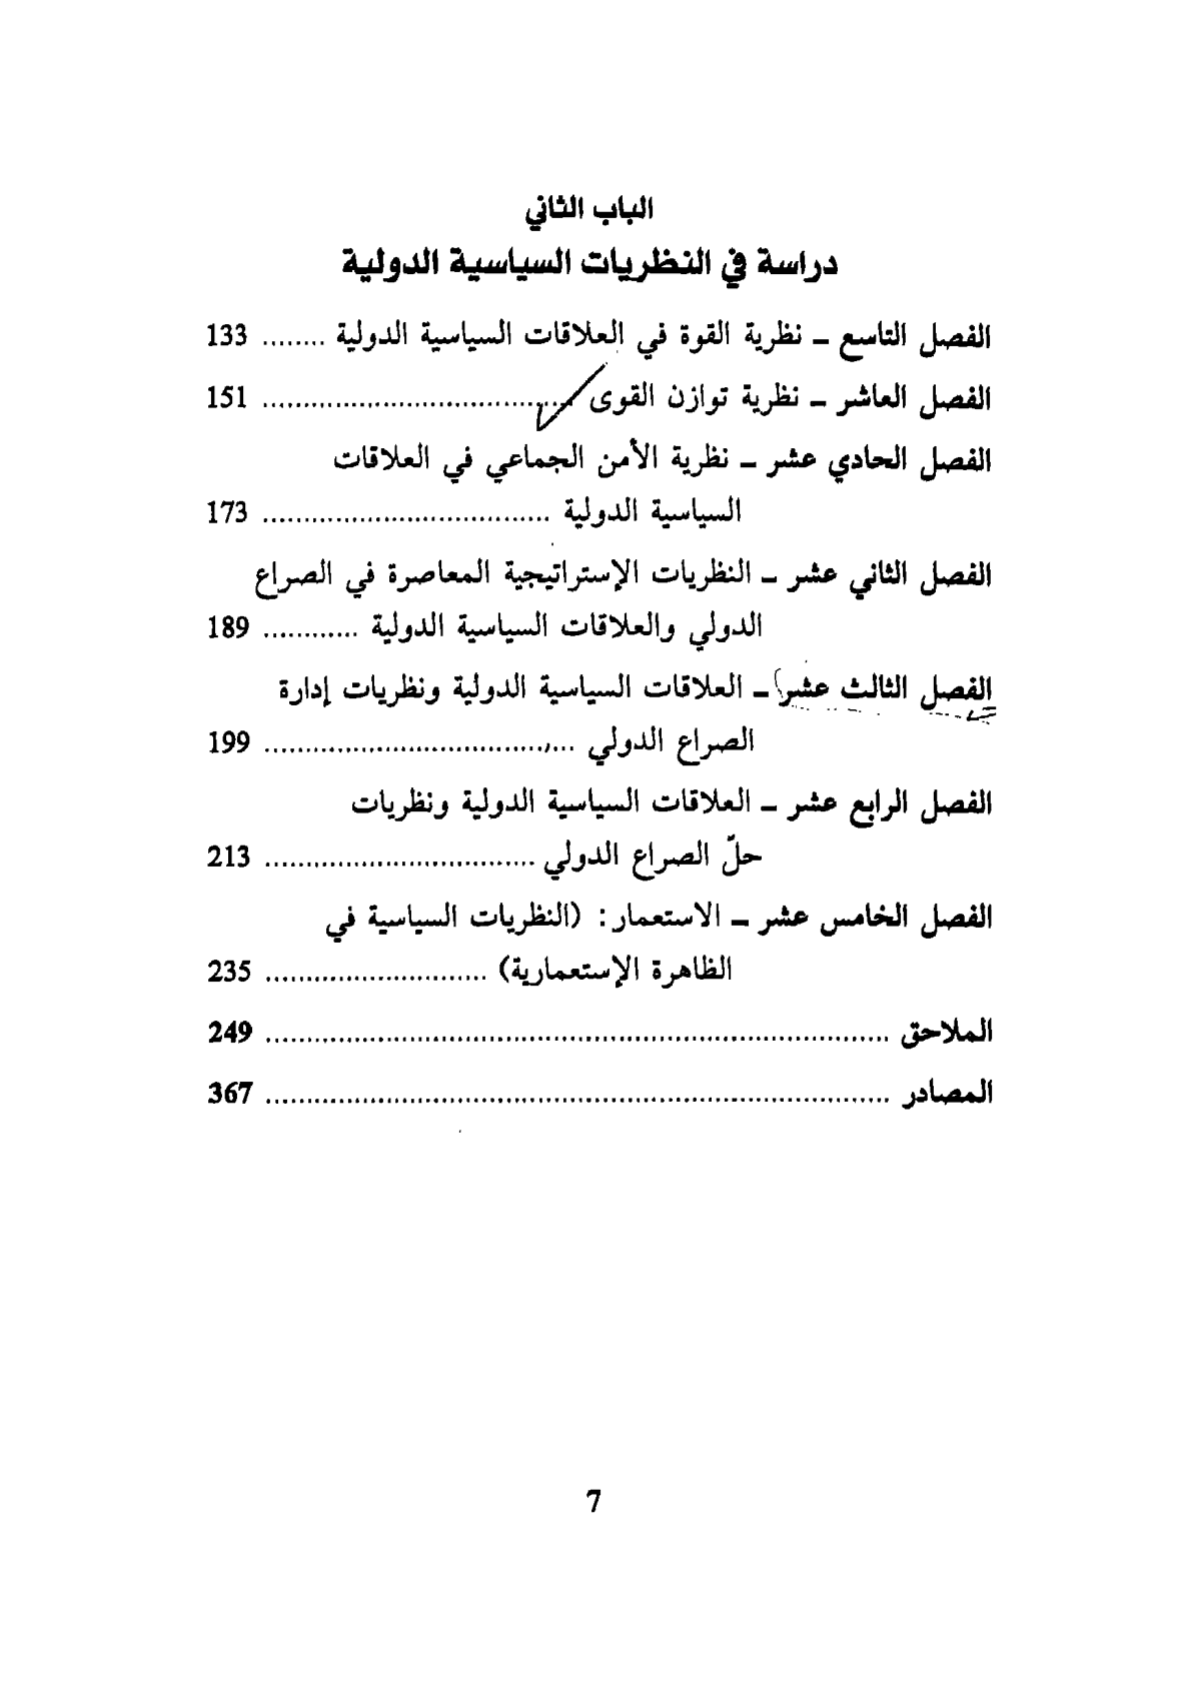 الباب الثاني
دراسة في النظريات السياسية الدولية
الفصل التاسع ــ نظرية القوة في العلاقات السياسية الدولية ........ 133
الفصل العاشر ــ نظرية توازن القوى ...................................... 151
الفصل الحادي عشر ــ نظرية الأمن الجماعي في العلاقات
السياسية الدولية ................................... 173
الفصل الثاني عشر ــ النظريات الإستراتيجية المعاصرة في الصراع
الدولي والعلاقات السياسية الدولية ............ 189
الفصل الثالث عشر ــ العلاقات السياسية الدولية ونظريات إدارة
الصراع الدولي ...................................... 199
الفصل الرابع عشر ــ العلاقات السياسية الدولية ونظريات
حلّ الصراع الدولي ................................. 213
الفصل الخامس عشر ــ الاستعمار: (النظريات السياسية في
الظاهرة الإستعمارية) ........................... 235
الملاحق ............................................................................ 249
المصادر ............................................................................ 367
7